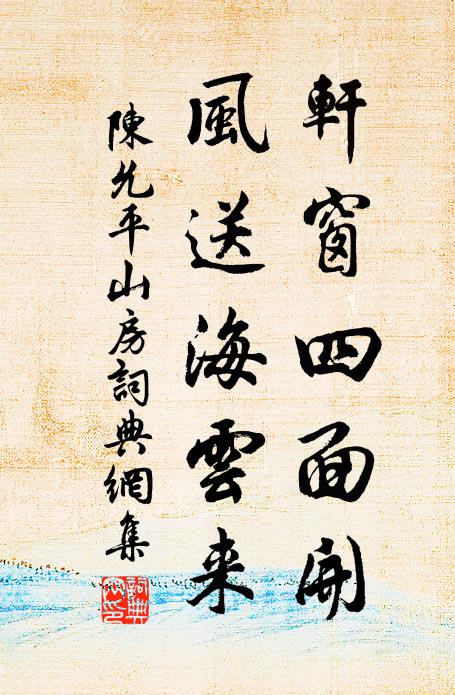 軒窗四面開
風送海雲来
陳允平山房詞典網集